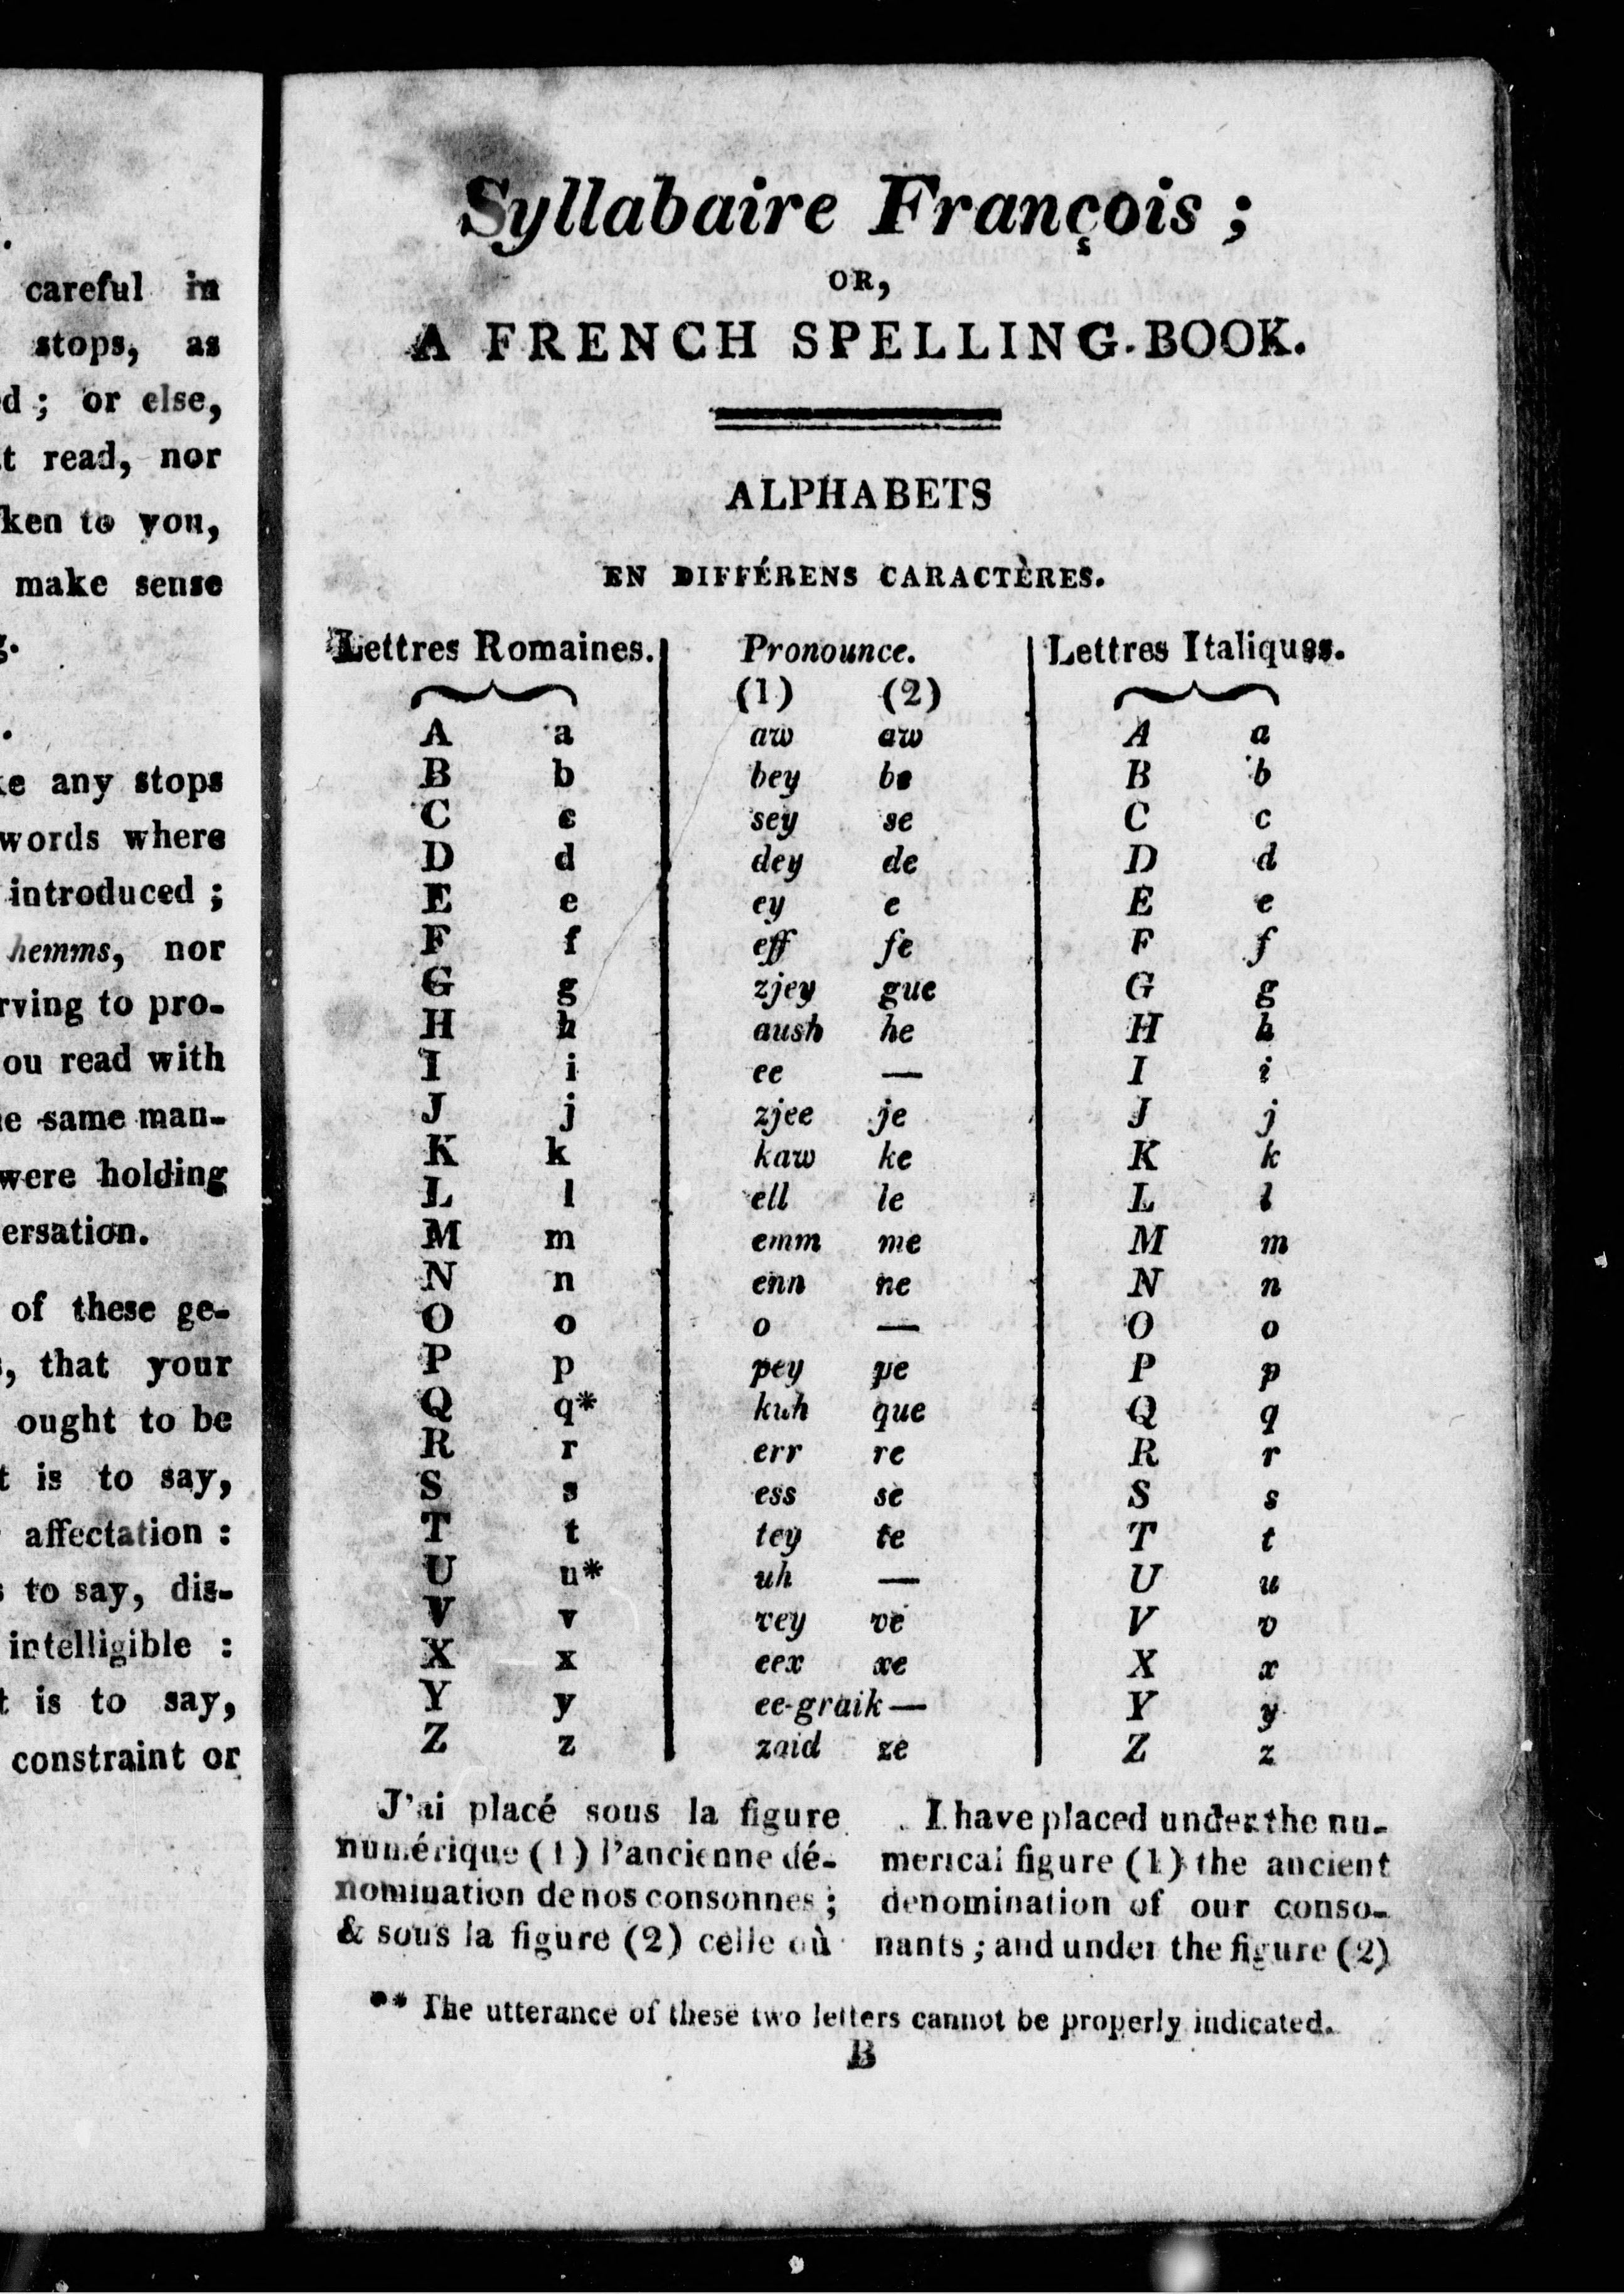 .
careful in
stops, as
d ; or else,
t read, nor
ken to you,
make sense
g.
.
ke any stops
words where
introduced ;
hemms, nor
rving to pro-
ou read with
e same man-
were holding
ersation.
of these ge-
s, that your
ought to be
t is to say,
affectation :
s to say, dis-
intelligible :
t is to say,
constraint or
Syllabaire François ;
OR,
A FRENCH SPELLING-BOOK.
ALPHABETS
EN DIFFÉRENS CARACTÈRES.
Lettres Romaines. Pronounce. Lettres Italiques.
(1) (2)
A a aw aw A a
B b bey be B b
C c sey se C c
D d dey de D d
E e ey e E e
F f eff fe F f
G g zjey gue G g
H h aush he H h
I i ee — I i
J j zjee je J j
K k kaw ke K k
L l ell le L l
M m emm me M m
N n enn ne N n
O o o — O o
P p pey pe P p
Q q* kuh que Q q
R r err re R r
S s ess se S s
T t tey te T t
U u* uh — U u
V v vey ve V v
X x eex xe X x
Y y ee-graik — Y y
Z z zaid ze Z z
J'ai placé sous la figure
numérique (1) l'ancienne dé-
nomination de nos consonnes ;
& sous la figure (2) celle où
I have placed under the nu-
merical figure (1) the ancient
denomination of our conso-
nants ; and under the figure (2)
** The utterance of these two letters cannot be properly indicated.
B